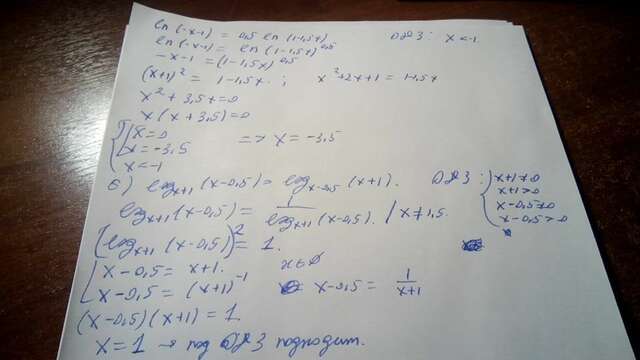 ln(-x-1) = 0,5 ln(1-1,5x) ОДЗ: x<-1
ln(-x-1) = ln(1-1,5x)^0,5
-x-1 = (1-1,5x)^0,5
(x+1)^2 = 1-1,5x ; x^2+2x+1 = 1-1,5x
x^2 + 3,5x = 0
x(x+3,5) = 0
x = 0
x = -3,5 => x = -3,5
x < -1
е) log_x+1 (x-0,5) = log_x-0,5 (x+1). ОДЗ: x+1≠0
x+1>0
log_x+1 (x-0,5) = 1/log_x+1 (x-0,5). / x≠1,5. x-0,5≠0
x-0,5>0
[log_x+1 (x-0,5)]^2 = 1.
x-0,5 = x+1. x∈∅
x-0,5 = (x+1)^-1 x-0,5 = 1/x+1
(x-0,5)(x+1) = 1
x = 1 → под ОДЗ подходит.